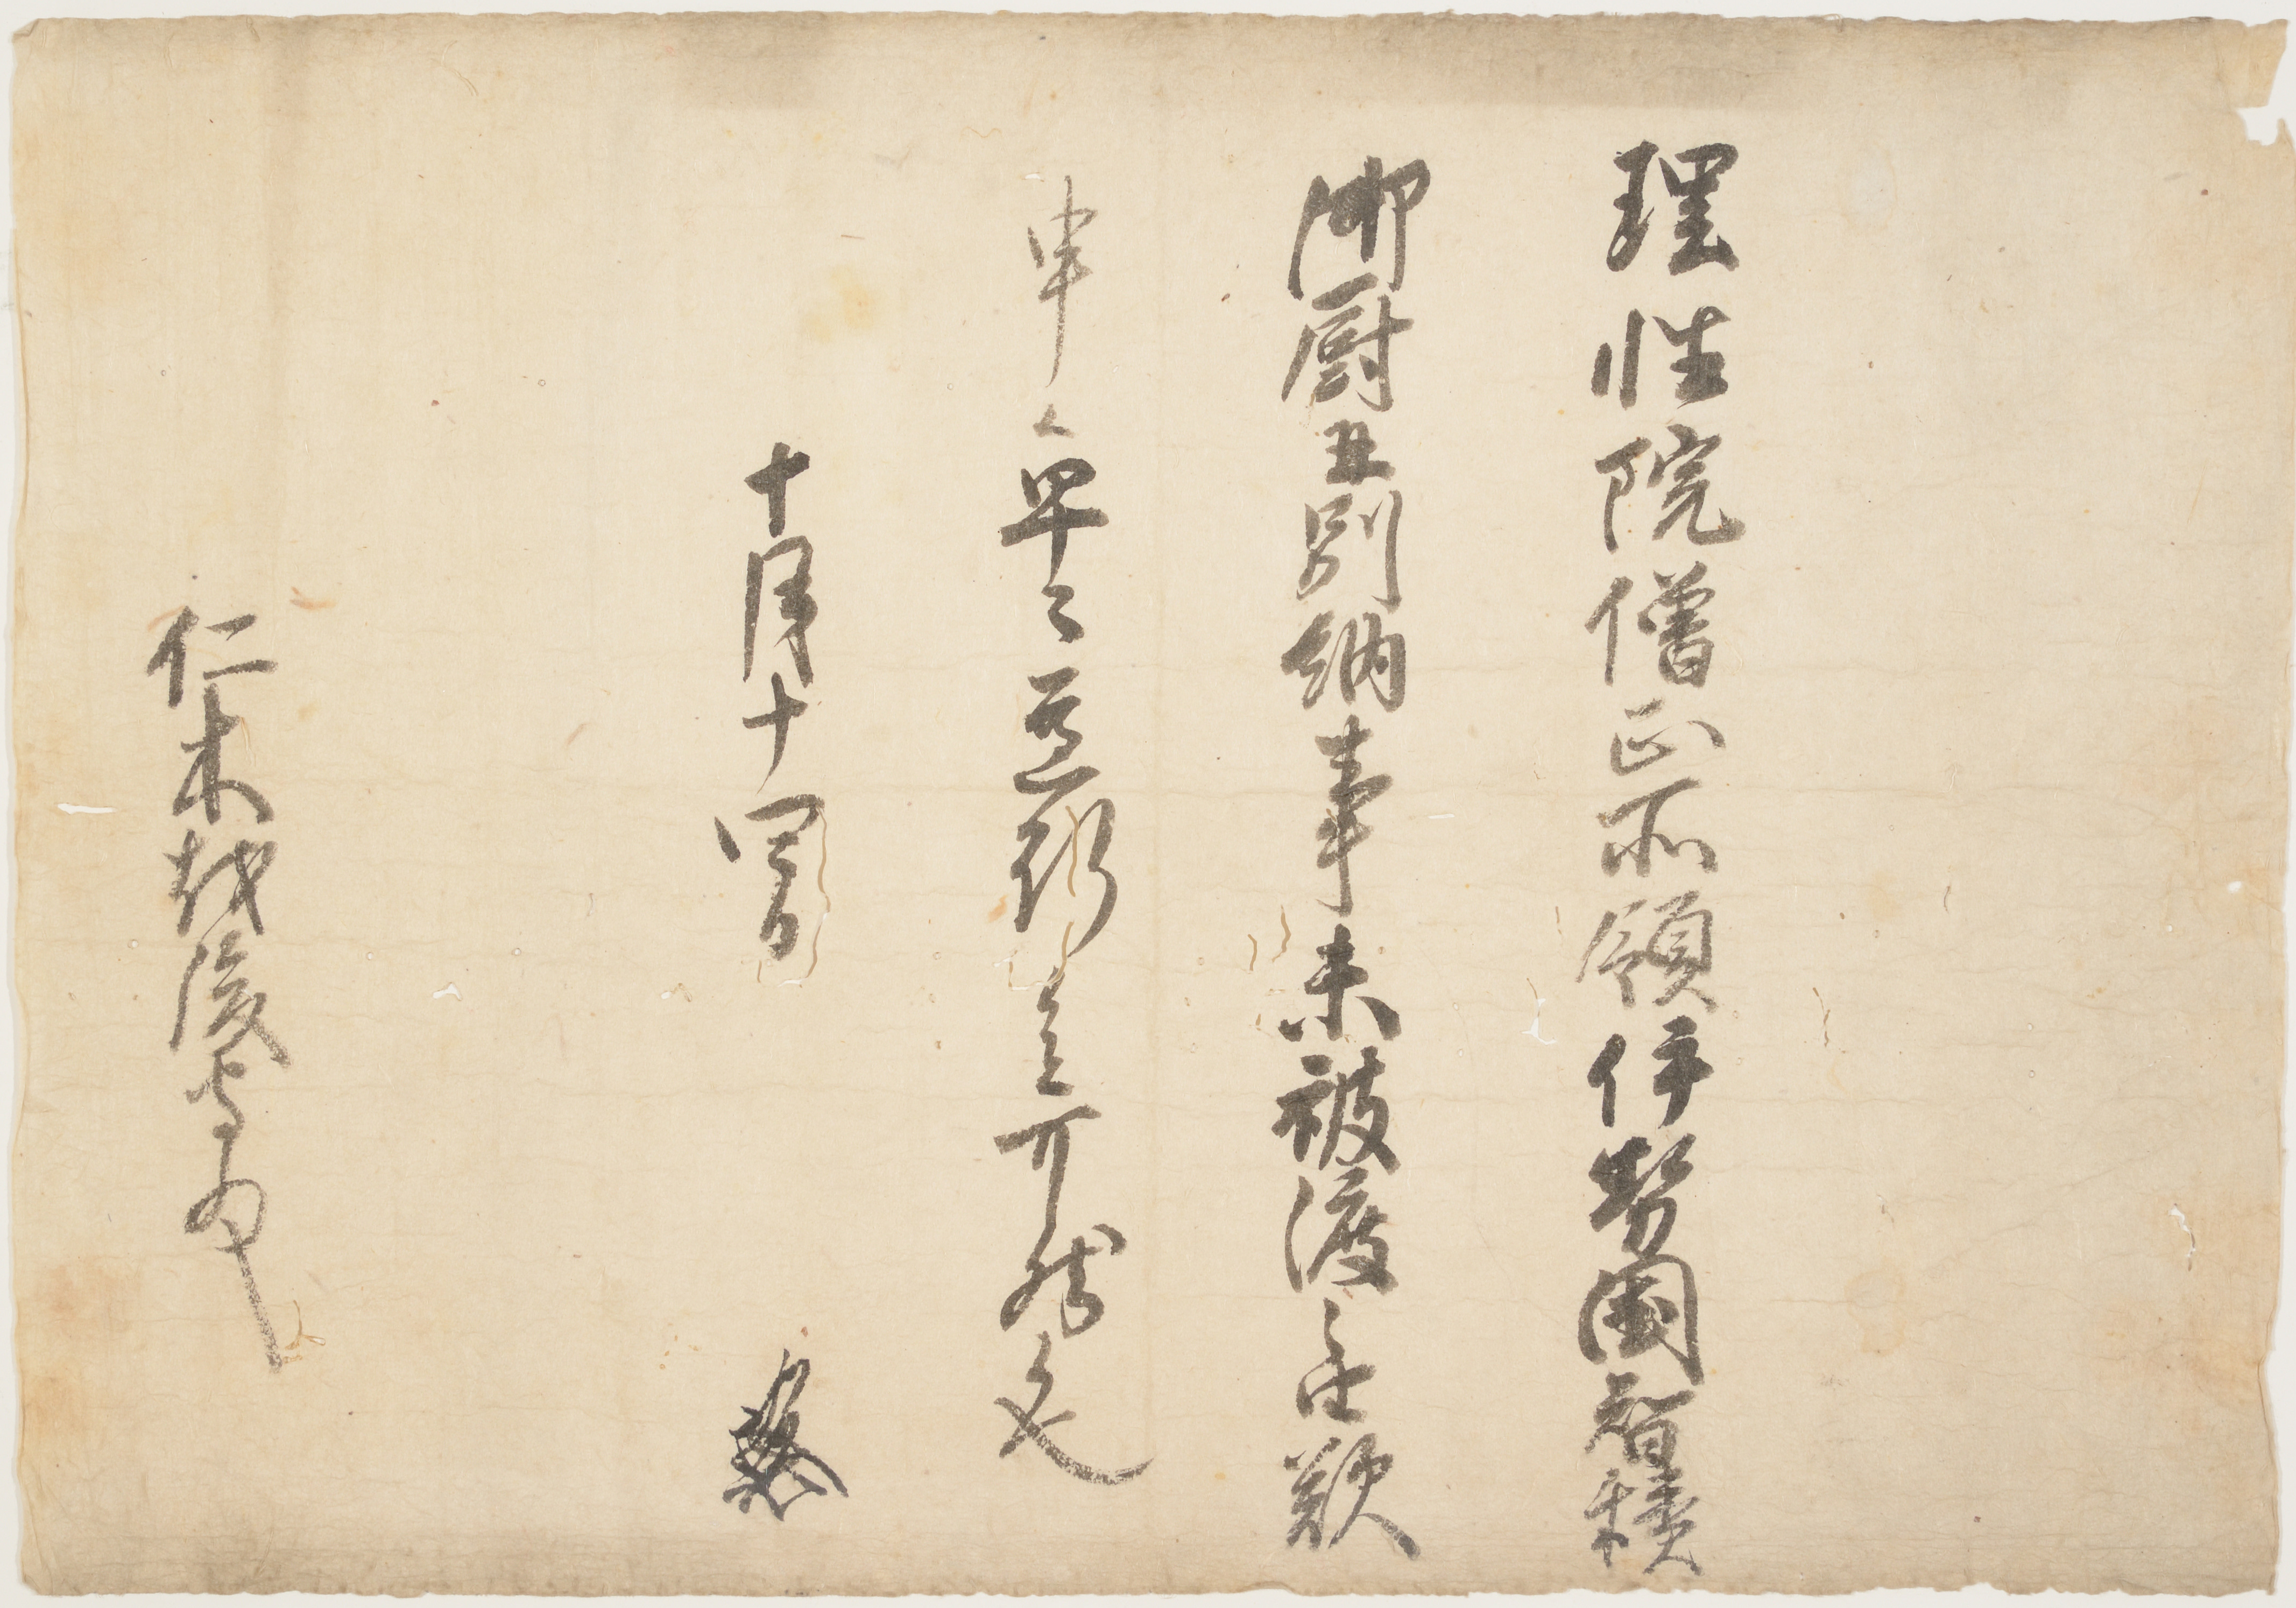 理性院僧正所領伊勢國智積
御厨并別納事未被渡之由歎
申候早々遵行候之可然候也
十月十四日
仁木越後守殿